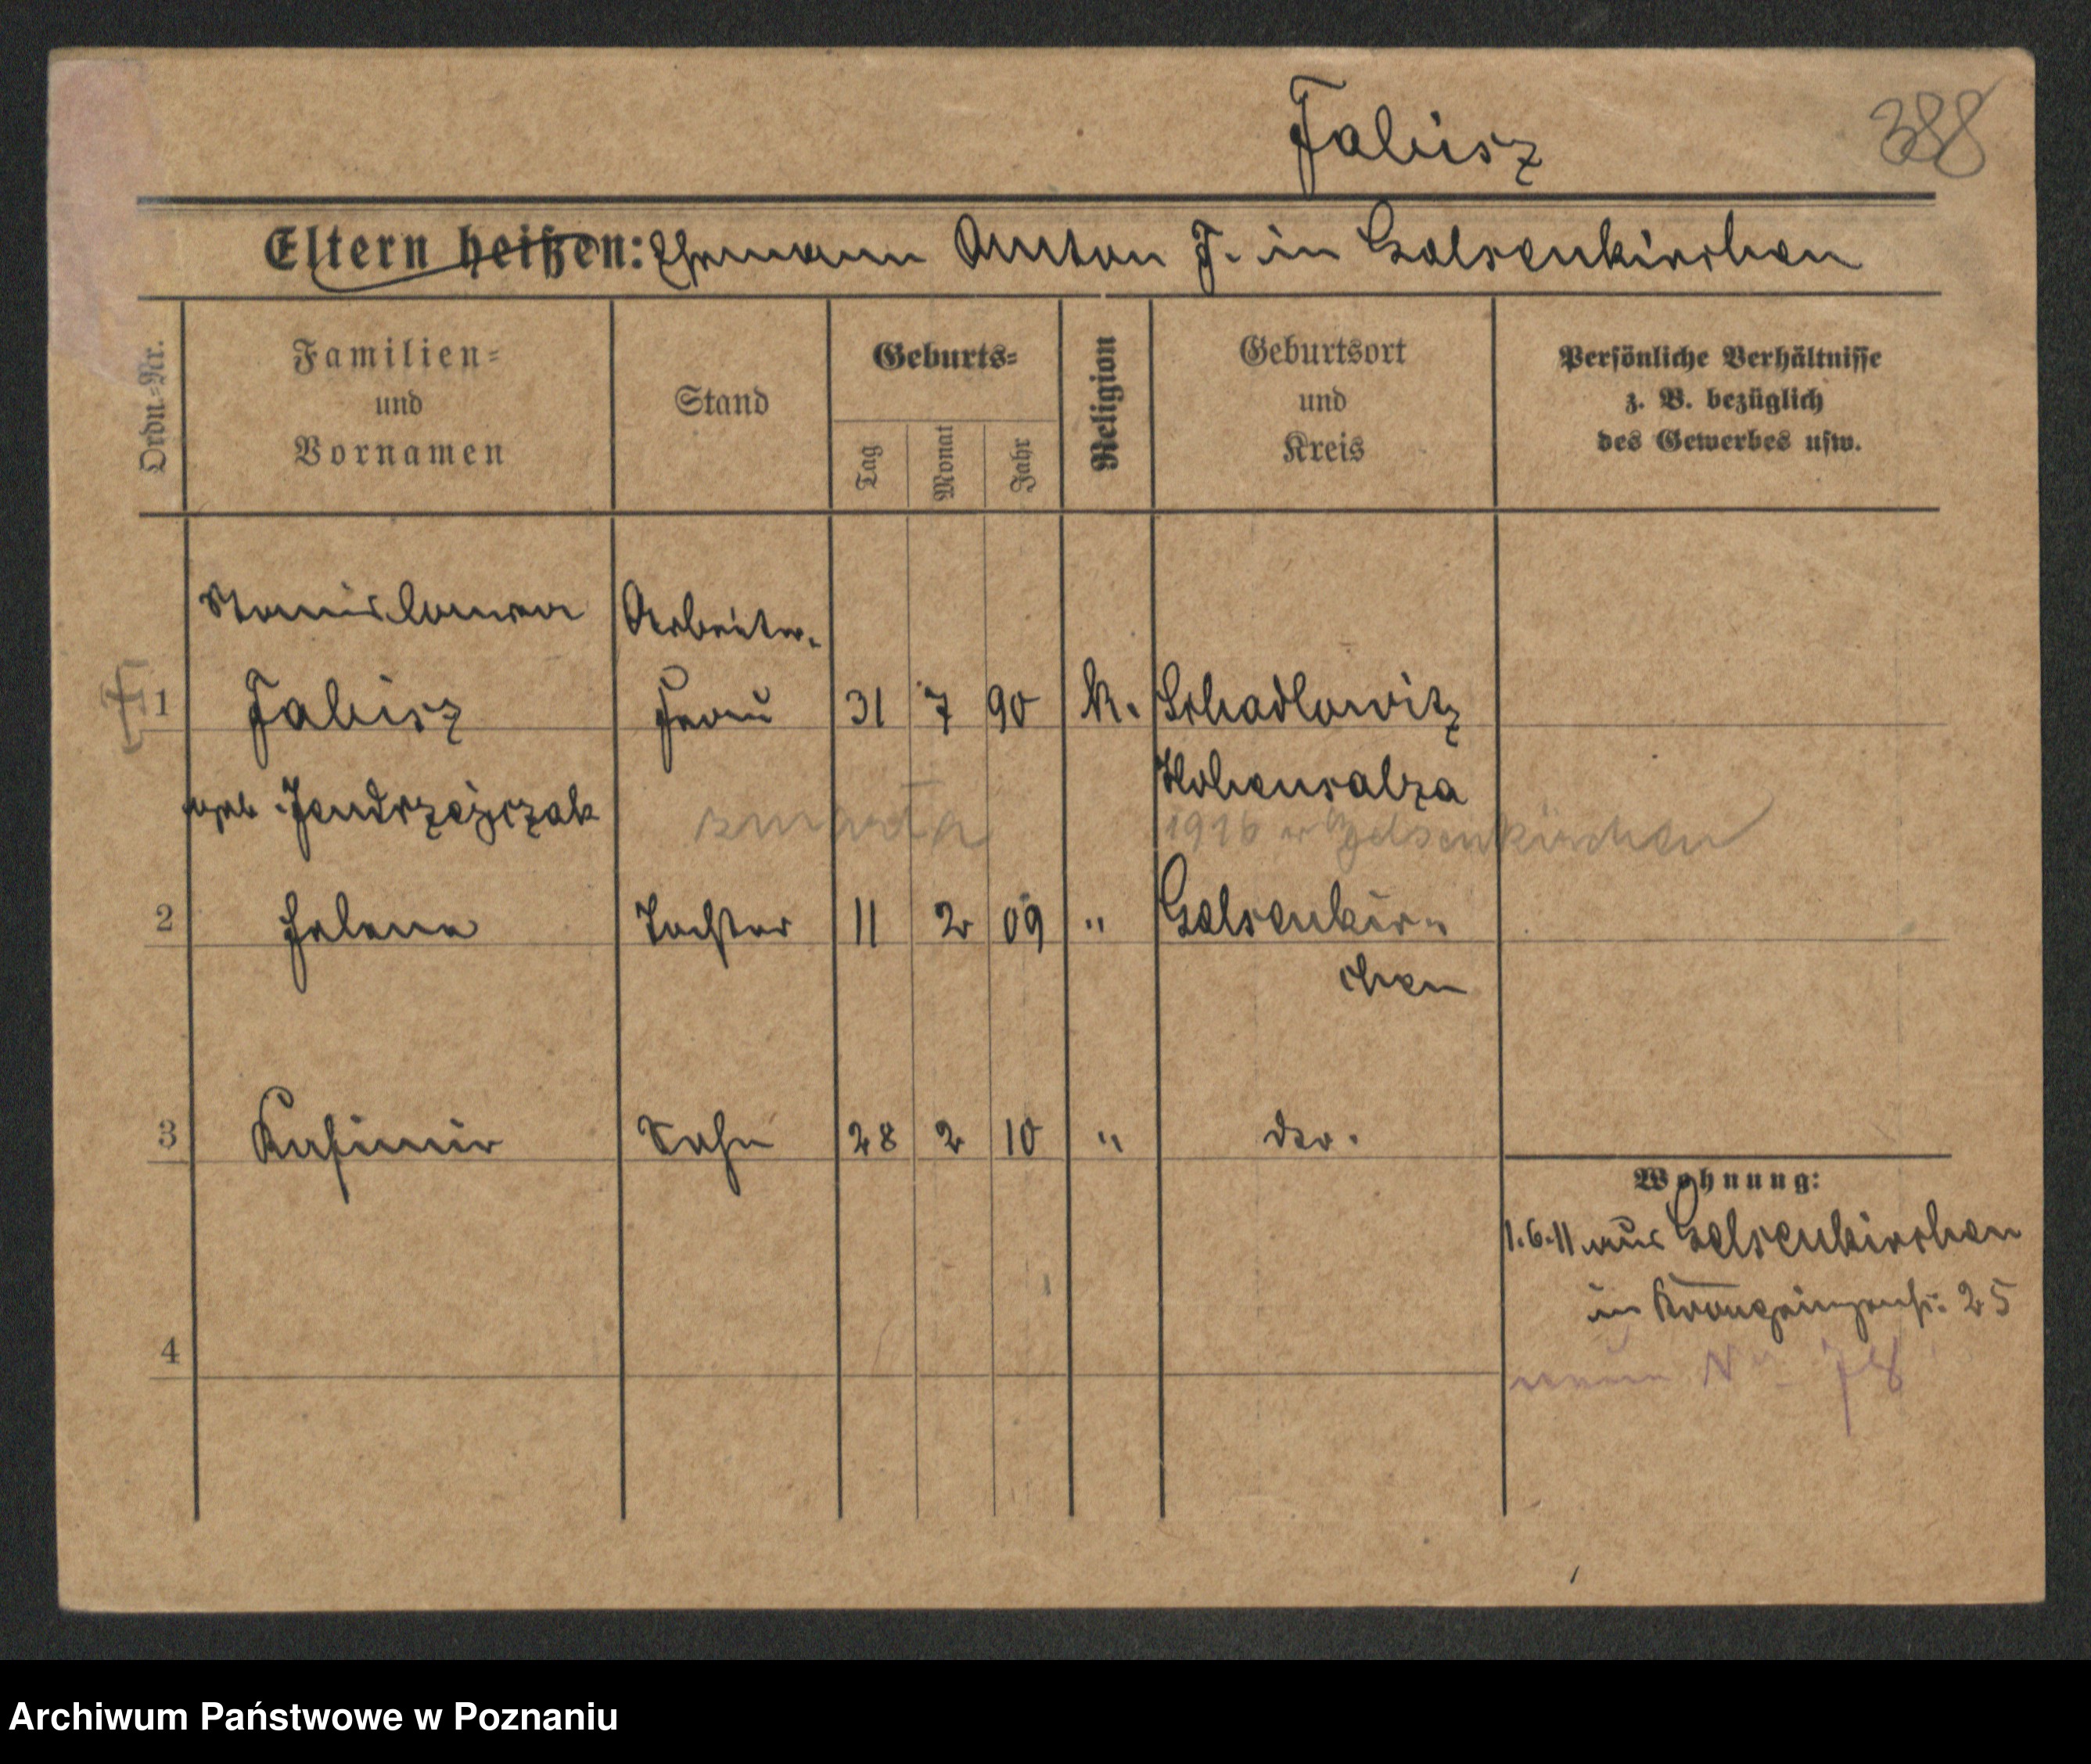 Fabisz 388
Eltern heißen: Ehemann Anton F. in Gelsenkirchen
Ordn.=Nr.
Familien=
und
Vornamen
Stand
Geburts=
Tag
Monat
Jahr
Religion
Geburtsort
und
Kreis
Persönliche Verhältnisse
z. B. bezüglich
des Gewerbes usw.
Stanislawa Arbeiter-
1 Fabisz Frau 31 7 90 k. Schadlowitz
Hohensalza
geb. Jendrzejczak
zmarła 1916 w Gelsenkirchen
2 Helene Tochter 11 2 09 " Gelsenkir-
chen
3 Kasimir Sohn 28 2 10 " do.
Wohnung:
1.6.11 aus Gelsenkirchen
in Kronprinzenstr. 25
4
Nr 78
Archiwum Państwowe w Poznaniu